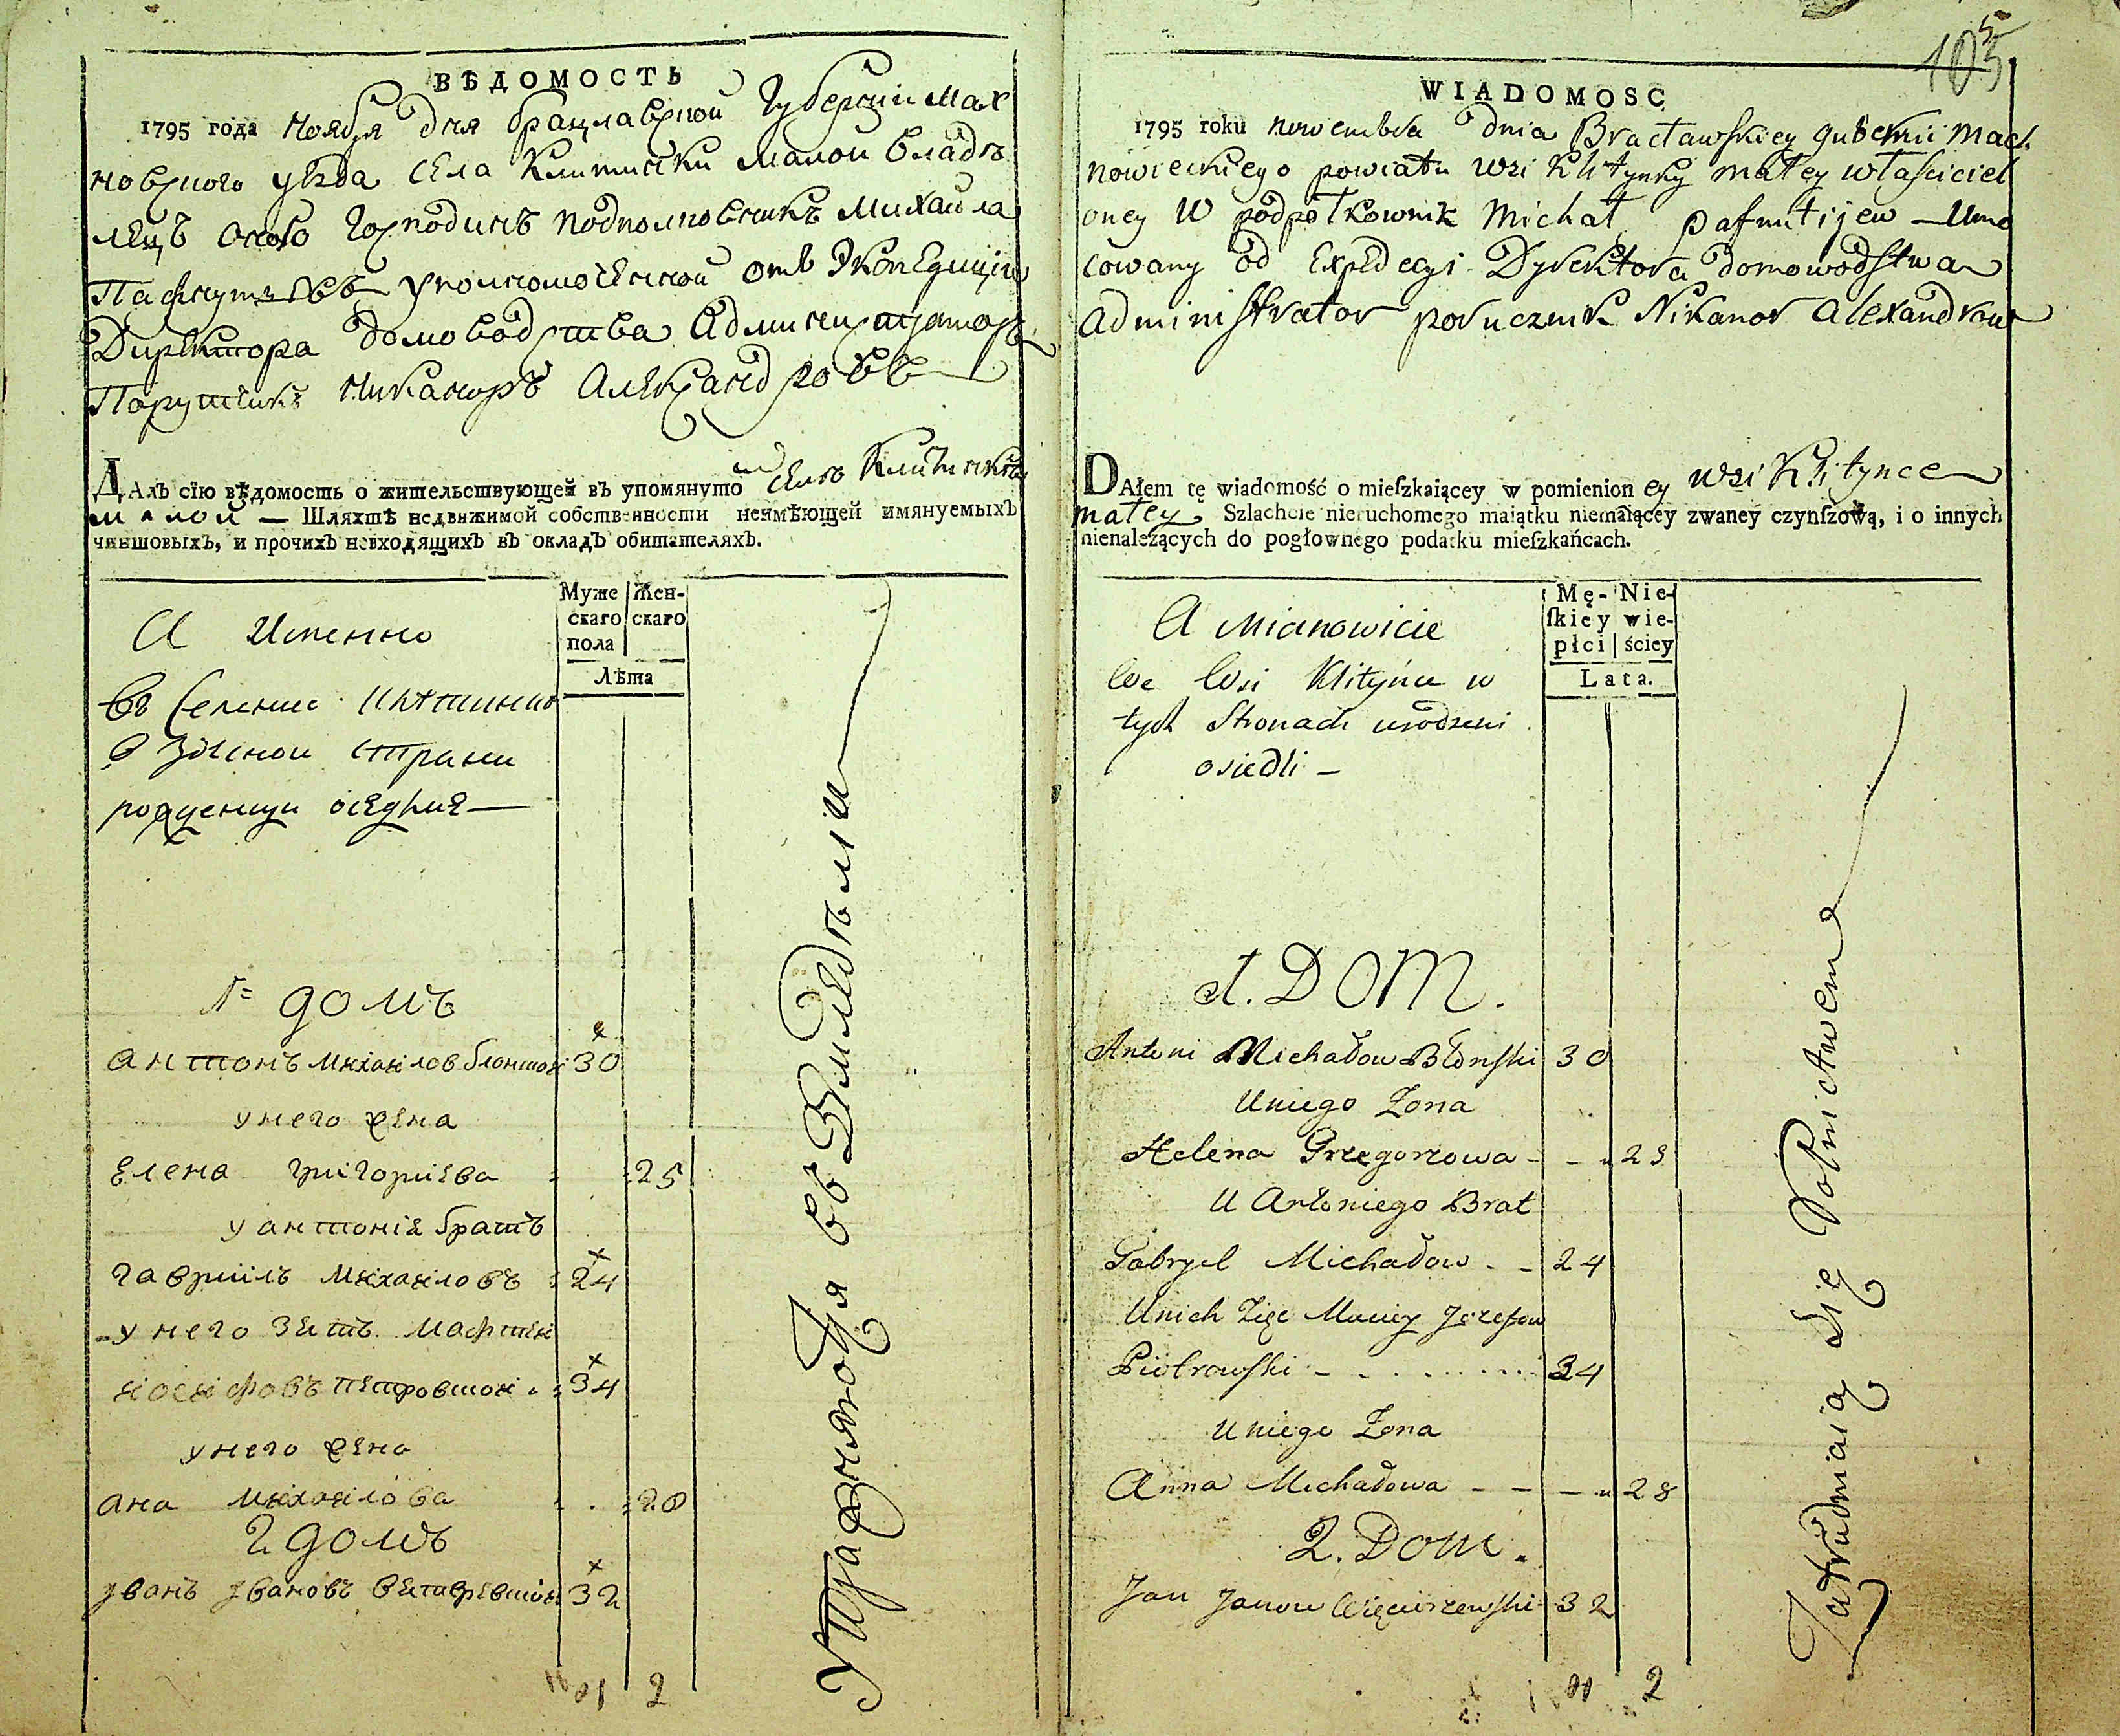 ВѢДОМОСТЬ
1795 года Ноября дня Брацлавской Губернии Мах
новского уезда села Клитинки малой владѣ
лецъ оного Господинъ подполковникъ Михаила
Пафнутьевъ Уполномоченной отъ Экспедиціи
Директора домоводства Администраторъ
Порутчикъ Никаноръ Александровъ
ДАлъ сію вѣдомость о жительствующей въ упомянуто селѣ Клитинкѣ
малой — Шляхтѣ недвижимой собственности неимѣющей имянуемыхъ
чиншовыхъ, и прочихъ невходящихъ въ окладъ обитателяхъ.
Муже скаго пола
Жен- скаго
Лѣта
А Именно
въ селение Клитинки
в здешной страни
рожденци оседлие —
1 = домъ
антонъ михаиловъ блонский 30
у него жена
елена григориева 25
у антония братъ
гаврилъ михаиловъ 24
у него зять матвей
иосифовъ петровский 34
у него жена
ана михаилова 28
2 домъ
Иванъ Ивановъ 32
2
Упражняются въ Земледѣлии
105
WIADOMOSC
1795 roku nowembra dnia Bracławskiey gubernii Mach
nowieckiego powiatu wsi Klitynky małey właściciel
oney W podpółkownik Michał pafnutijew — Umo
cowany od Expedecyi Dyrektora domowodstwa
administrator porucznik Nikanor Alexandrow
DAłem tę wiadomość o mieſzkaiącey w pomienion ey wsi Klitynce
małey Szlachcie nieruchomego maiątku niemaiącey zwaney czynſzową, i o innych
nienależących do pogłownego podatku mieſzkańcach.
Mę- ſkiey płci
Nie- wie- ściey
Lata.
A Mianowicie
we Wsi Klityńce w
tych Stronach urodzeni
osiedli —
1. DOM.
Antoni Michałow Błonski 30
Uniego Zona
Helena Grzegorzowa 25
U Antoniego Brat
Gabryel Michałow 24
Unich Zięc Maciey Jozefow
Piotrowski 34
Uniego Zona
Anna Michałowa 28
2. Dom.
Jan Janow Więciszewski 32
2
Zatrudniaią się Rolnictwem